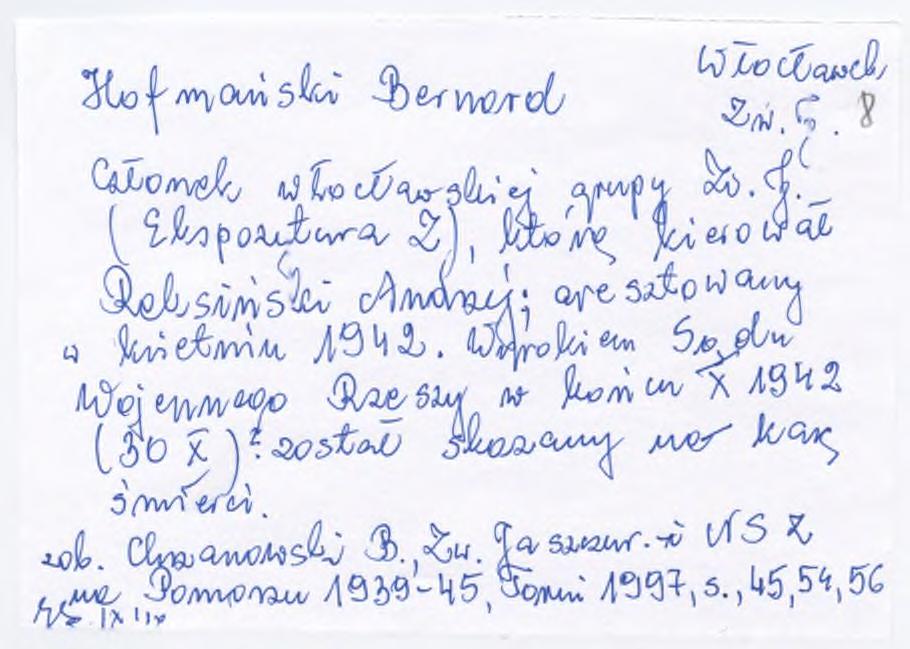 Włocławek
Hofmański Bernard
Zw. J. 8
Członek włocławskiej grupy Zw. J.
(Ekspozytura Z), którą kierował
Reksiński Andrzej; aresztowany
w kwietniu 1942. Wyrokiem Sądu
Wojennego Rzeszy w końcu X 1942
(30 X)? został skazany na karę
śmierci.
zob. Chrzanowski B., Zw. Jaszczur. i NSZ
na Pomorzu 1939-45, Toruń 1997, s., 45, 54, 56